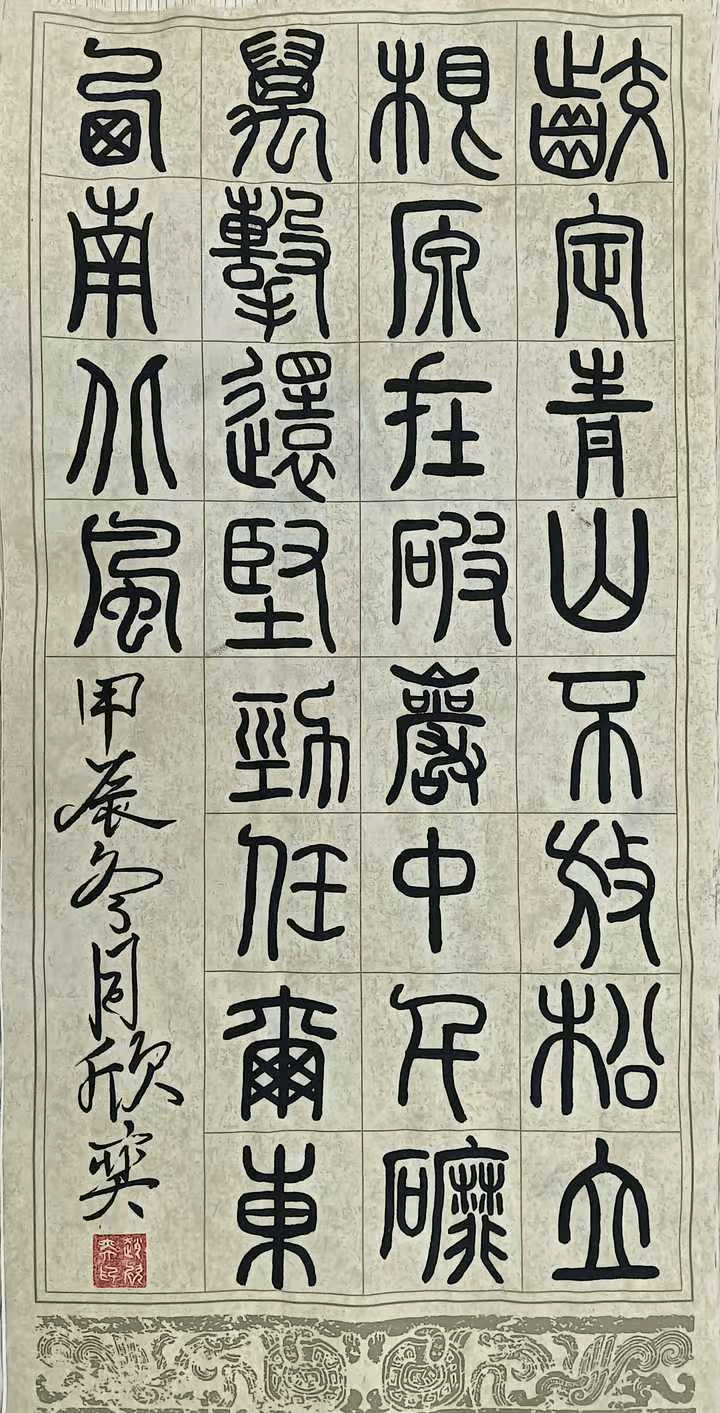 齩定青山不放松立
根原在破巖中千䃺
萬擊還堅勁任爾東
西南北風
甲辰冬月欣奕